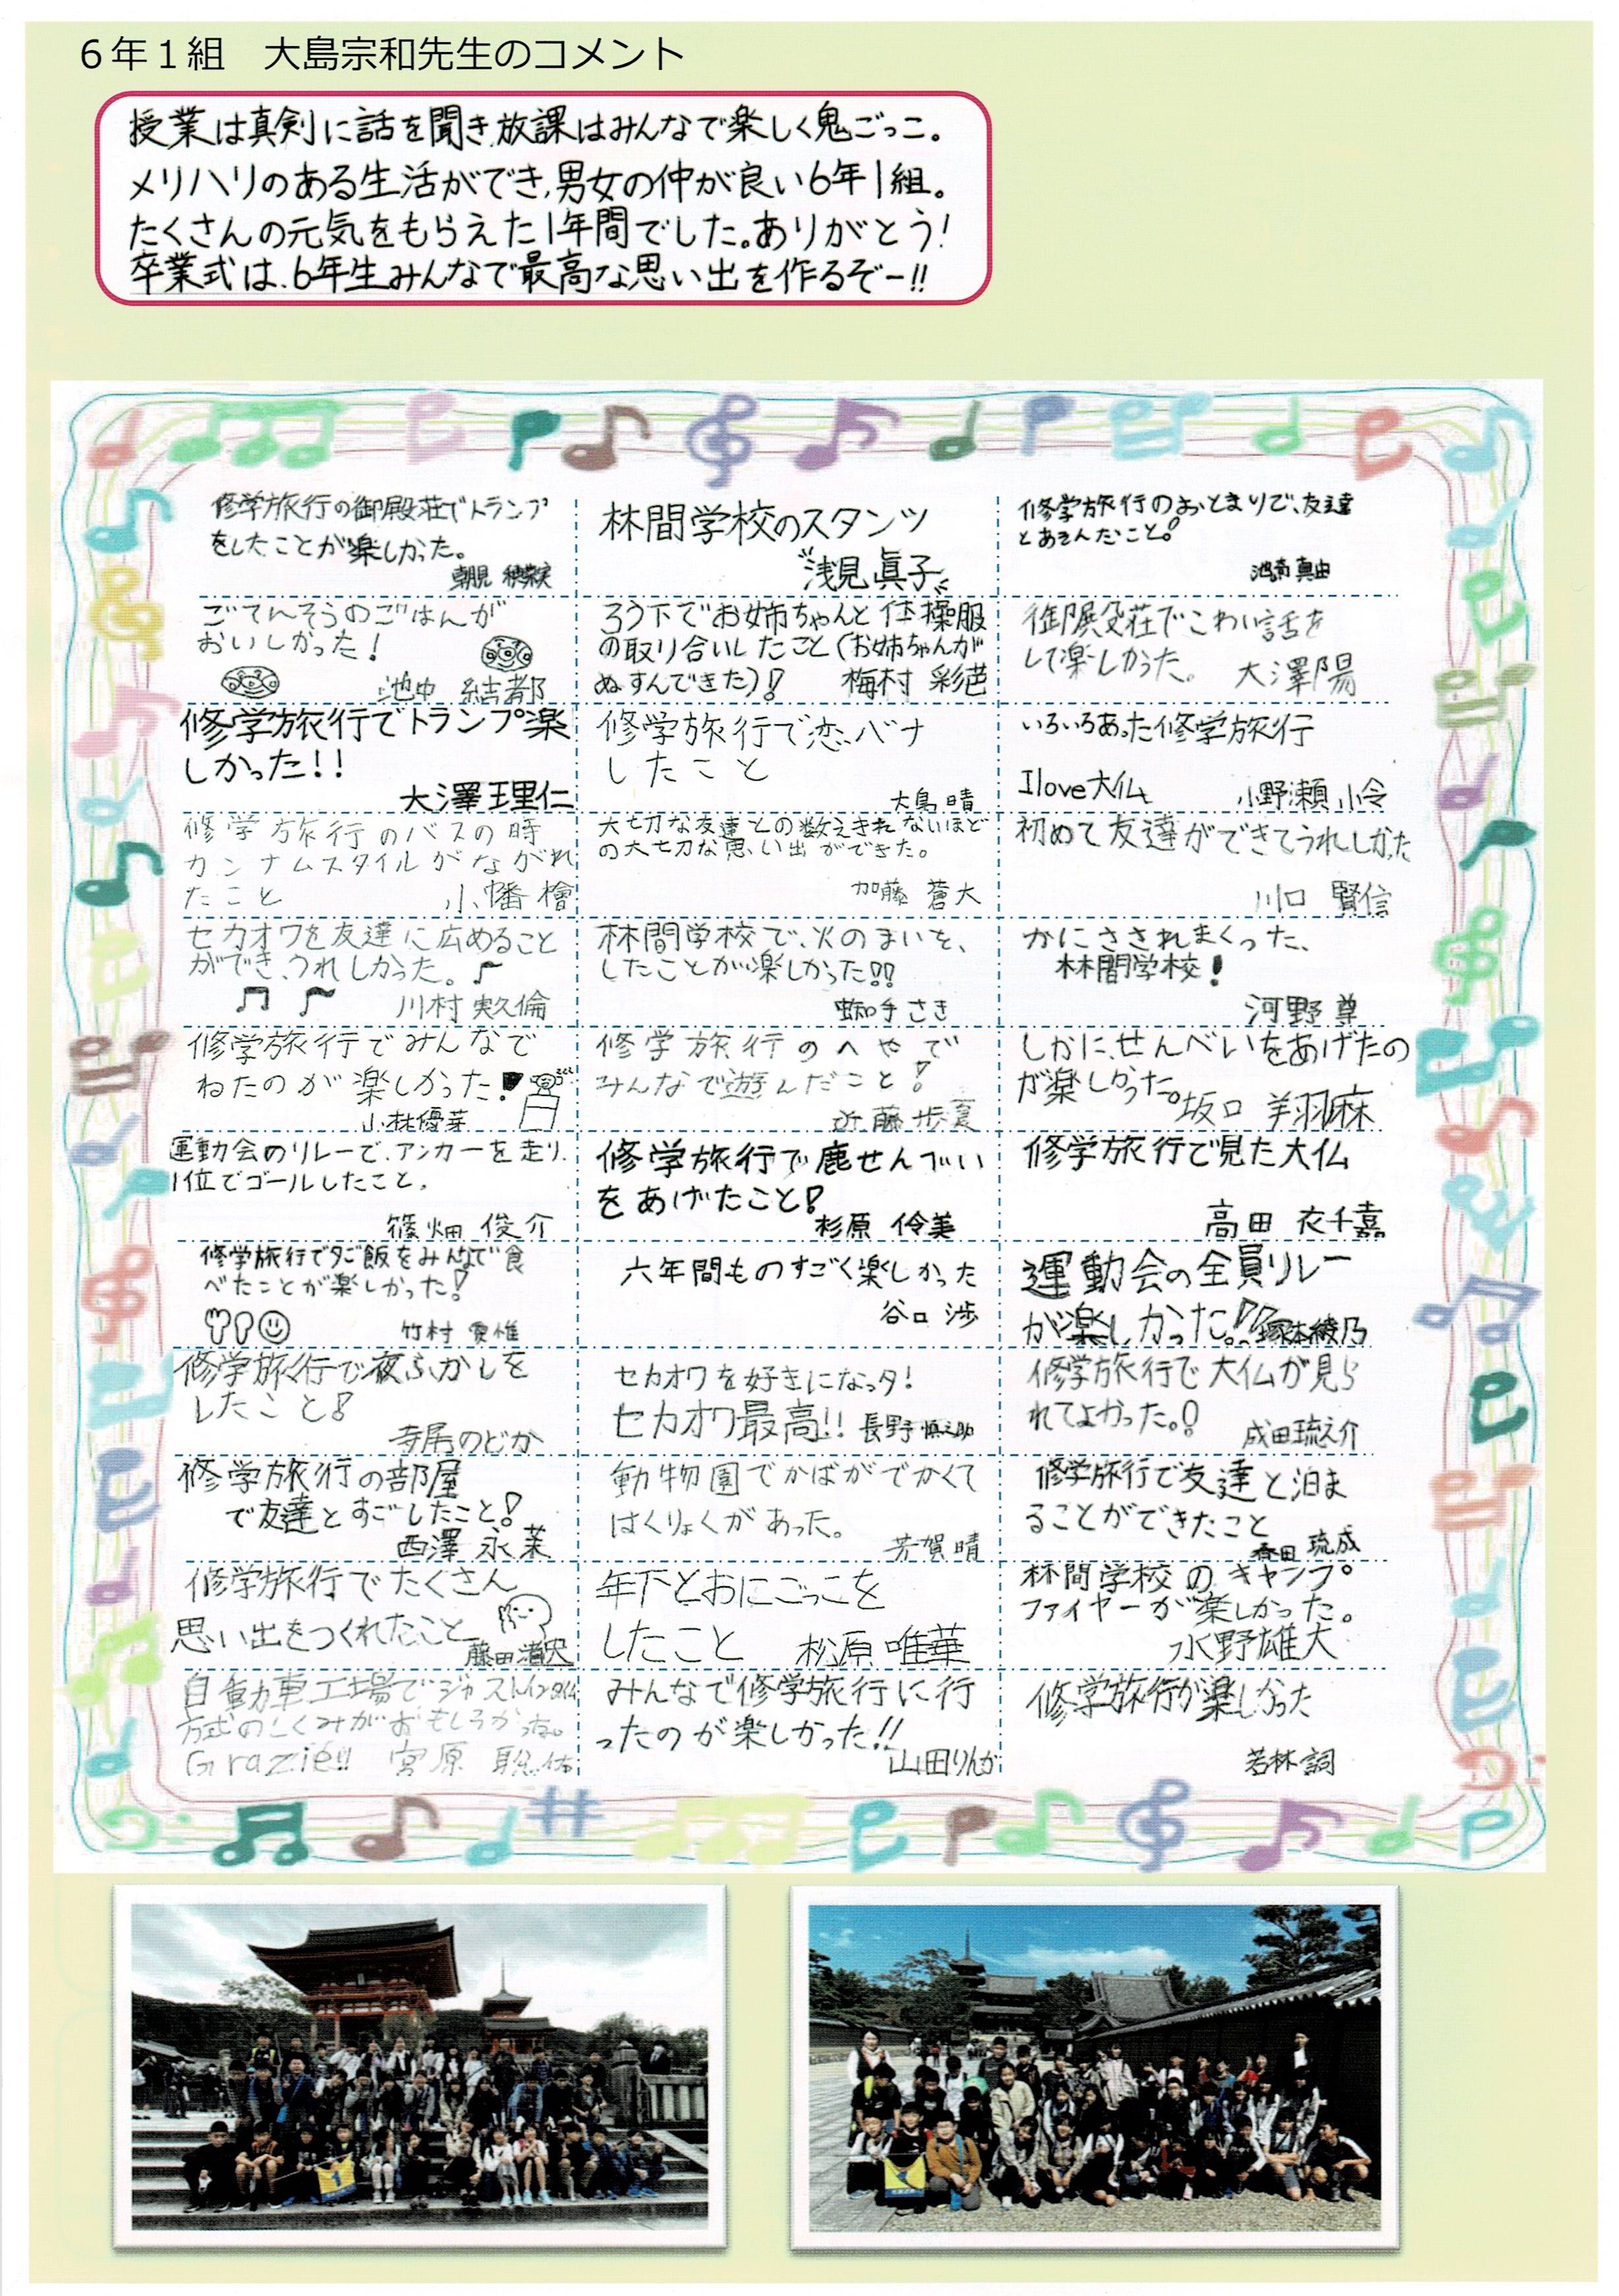 6年1組　大島宗和先生のコメント
授業は真剣に話を聞き、放課はみんなで楽しく鬼ごっこ。
メリハリのある生活ができ、男女の仲が良い6年1組。
たくさんの元気をもらえた1年間でした。ありがとう!
卒業式は、6年生みんなで最高な思い出を作るぞー!!
修学旅行の御殿荘でトランプ
をしたことが楽しかった。
朝見
林間学校のスタンツ
浅見眞子
修学旅行のおとまりで、友達
とあそんだこと!
真由
ごてんそうのごはんが
おいしかった!
池中 結都
ろう下でお姉ちゃんと体操服
の取り合いしたこと(お姉ちゃんが
ぬすんできた)! 梅村 彩芭
御殿荘でこわい話を
して楽しかった。 大澤陽
修学旅行でトランプ楽
しかった!!
大澤理仁
修学旅行で恋バナ
したこと
大島 晴
いろいろあった修学旅行
I love大仏 小野瀬 小令
修学旅行のバスの時
カンナムスタイルがながれ
たこと 小幡 檜
大切な友達との数えきれないほど
の大切な思い出ができた。
加藤 蒼大
初めて友達ができてうれしかった
川口 賢信
セカオワを友達に広めること
ができ、うれしかった。
川村 実久倫
林間学校で、火のまいを、
したことが楽しかった!!
蜘手 さき
かにさされまくった、
林間学校!
河野 尊
修学旅行でみんなで
ねたのが楽しかった!
小林優芽
修学旅行のへやで
みんなで遊んだこと!
近藤 歩夏
しかに、せんべいをあげたの
が楽しかった。坂口 翔麻
運動会のリレーで、アンカーを走り、
1位でゴールしたこと。
篠畑 俊介
修学旅行で鹿せんべい
をあげたこと!
杉原 伶美
修学旅行で見た大仏
高田 衣千嘉
修学旅行で夕ご飯をみんなで食
べたことが楽しかった!
竹村 愛椎
六年間ものすごく楽しかった
谷口 渉
運動会の全員リレー
が楽しかった!! 塚本綾乃
修学旅行で夜ふかしを
したこと!
寺尾のどか
セカオワを好きになっタ!
セカオワ最高!! 長野 慎之助
修学旅行で大仏が見ら
れてよかった。!
成田琉之介
修学旅行の部屋
で友達とすごしたこと!
西澤 永茉
動物園でかばがでかくて
はくりょくがあった。
芳賀 晴
修学旅行で友達と泊ま
ることができたこと
春田 琉成
修学旅行でたくさん
思い出をつくれたこと
藤田
年下とおにごっこを
したこと 松原 唯華
林間学校のキャンプ
ファイヤーが楽しかった。
水野雄大
自動車工場でジャストインタイム
方式のしくみがおもしろかった。
Grazie!! 宮原 聡佑
みんなで修学旅行に行
ったのが楽しかった!!
山田りんか
修学旅行が楽しかった
若林 詞
1